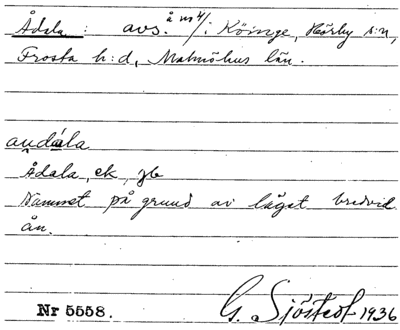 Ådala : avs. å m 4/i Köinge, Hörby s:n,
Frosta h:d, Malmöhus län.
audála
Ådala, ek, jb
Namnet på grund av läget bredvid
ån.
Nr 5558. G. Sjöstedt 1936